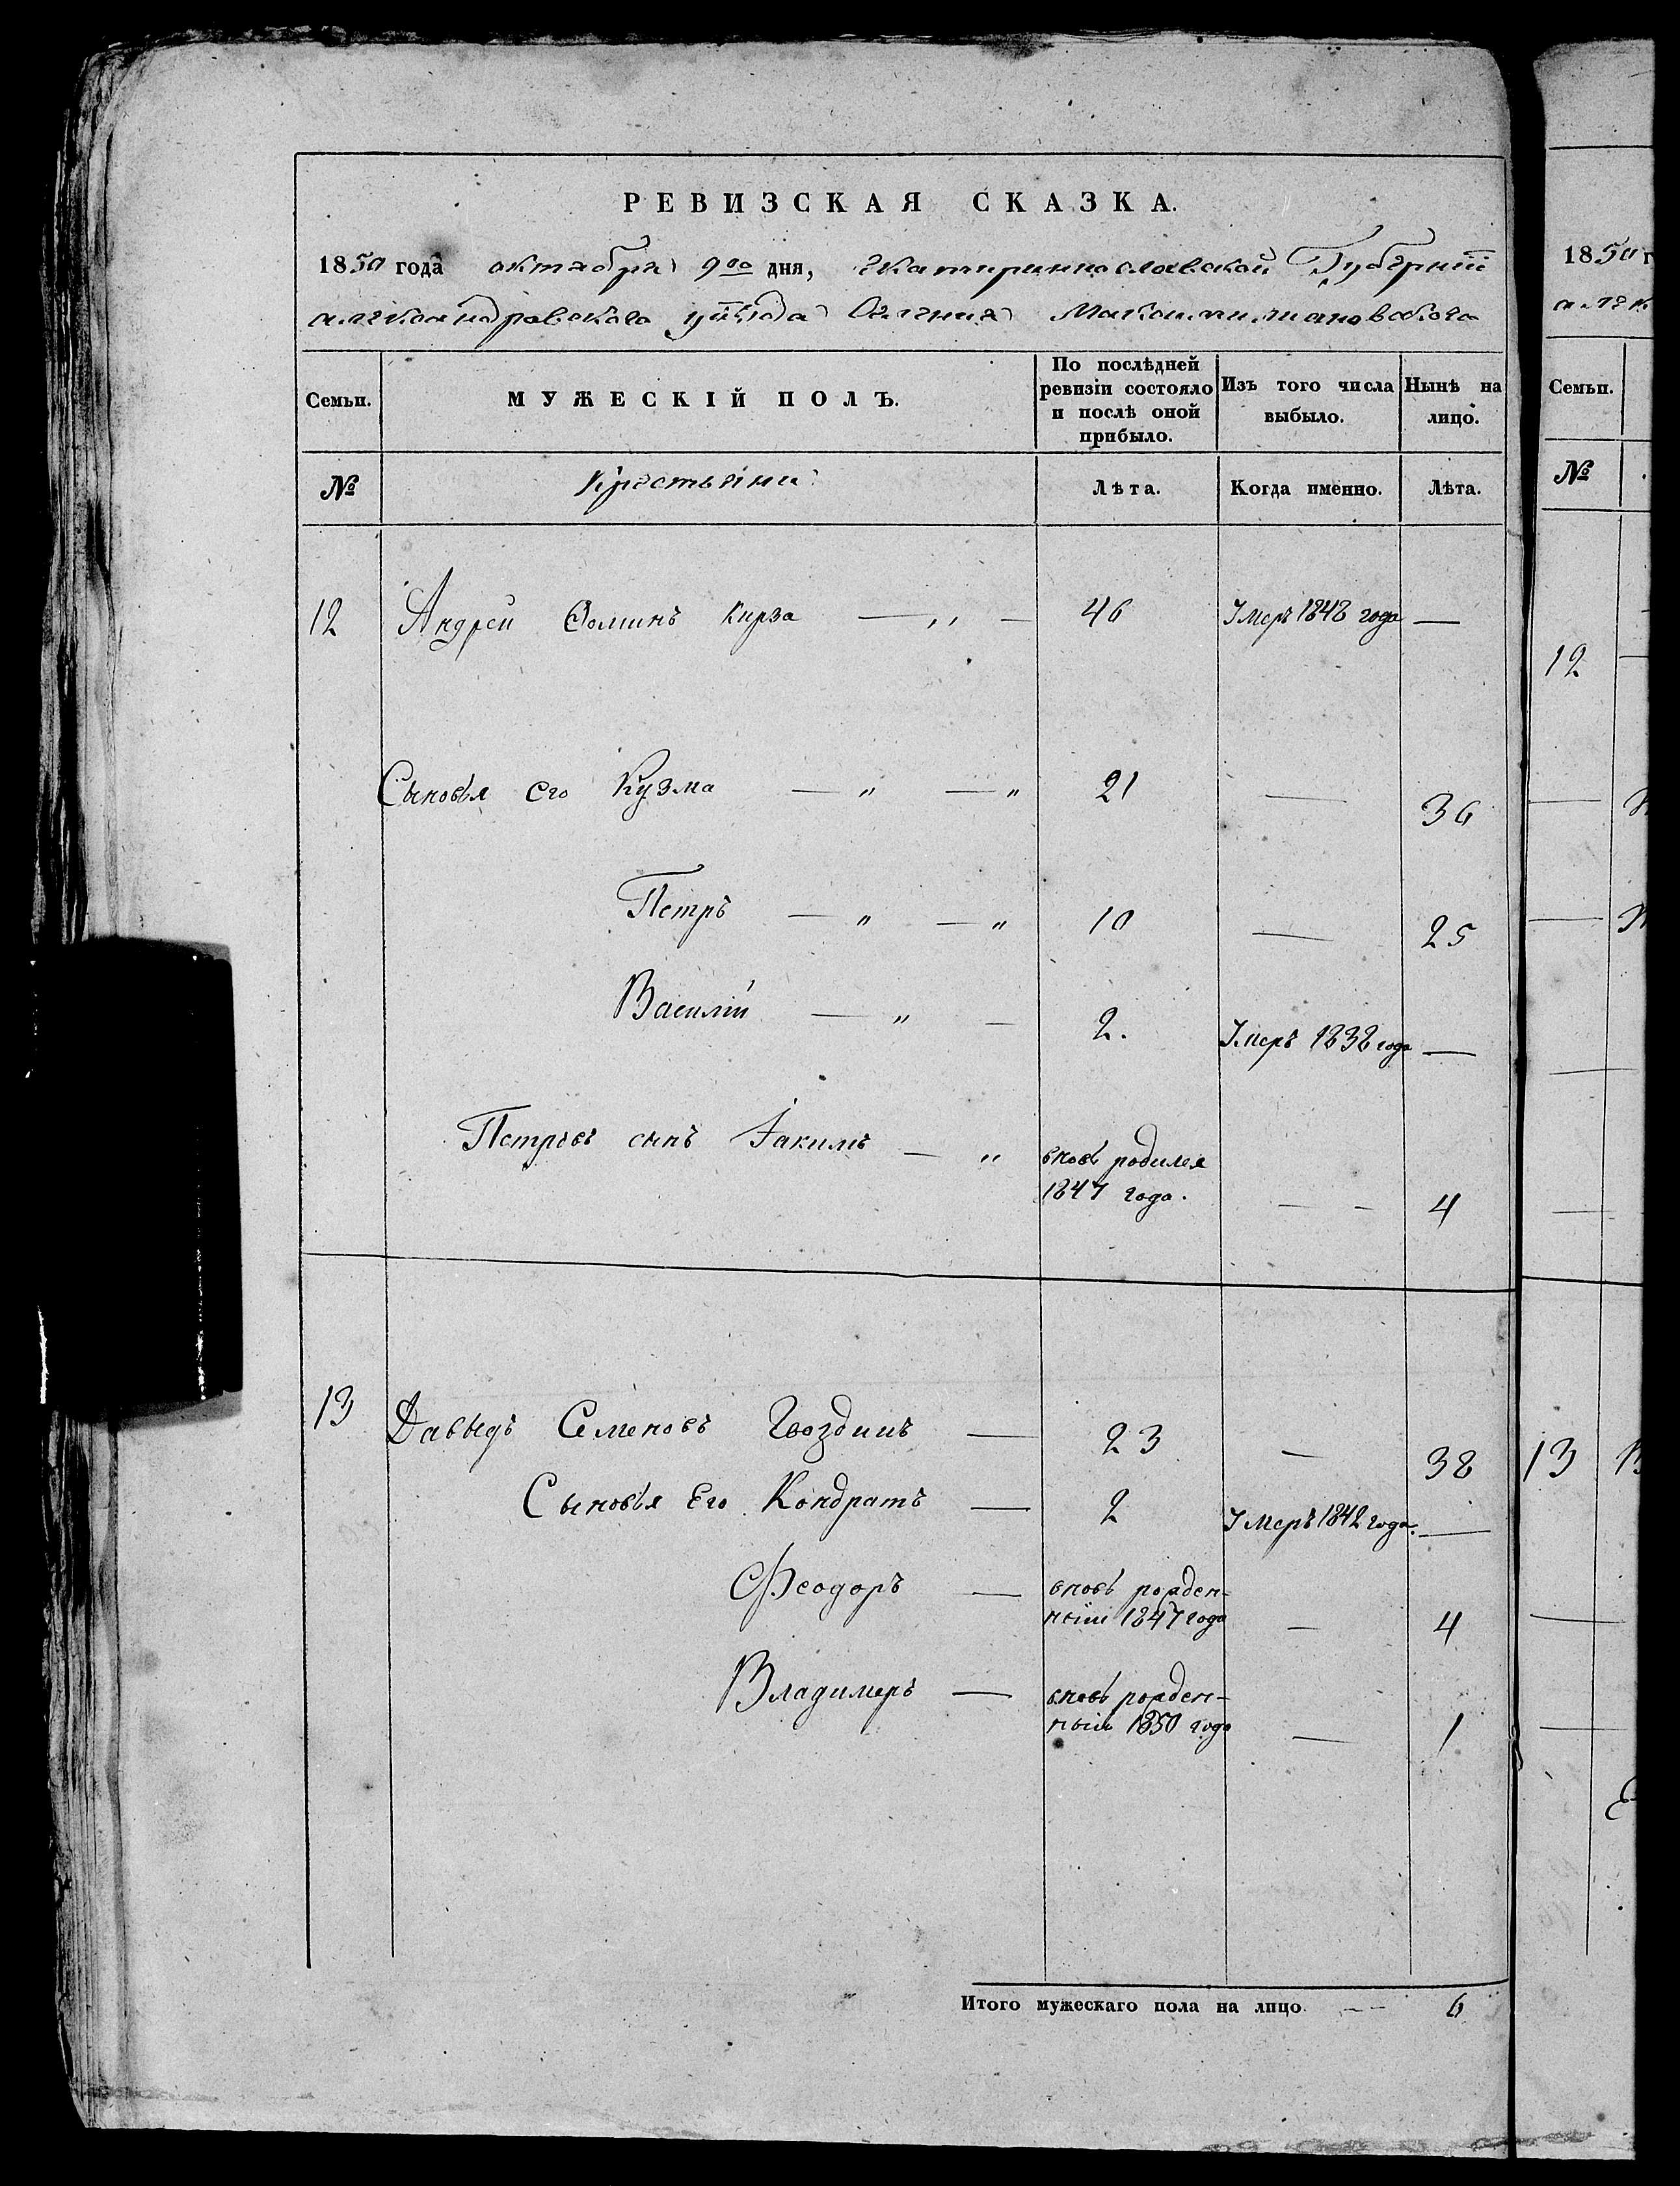 РЕВИЗСКАЯ СКАЗКА.
1850 года октября 9го дня, Екатеринославской Губернии
Александровского уѣзда Селения Максимилиановского
Семьи.
МУЖЕСКІЙ ПОЛЪ.
По послѣдней ревизіи состояло и послѣ оной прибыло.
Изъ того числа выбыло.
Нынѣ на лицо.
№ Крестьяни Лѣта. Когда именно. Лѣта.
12 Андрей Фоминъ Кирза — „ — 46 Умеръ 1848 года —
Сыновья его Кузма — „ — „ 21 — 36
Петръ — „ — „ 10 — 25
Василій — „ — 2. Умеръ 1838 года —
Петровъ сынъ Іакимъ — „ вновь родился
1847 года. — - 4
13 Давыдъ Семеновъ Гвоздинъ — 23 — 38
Сыновья Его Кондратъ — 2 Умеръ 1842 года. —
Феодоръ — вновь рожден-
ныій 1847 года — 4
Владимеръ — вновь рожден-
ныій 1850 года — 1
Итого мужескаго пола на лицо — — 6
1850 г
алек
Семьи.
№
12
13